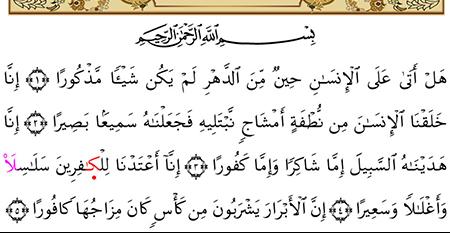 بِسْمِ ٱللَّهِ ٱلرَّحْمَٰنِ ٱلرَّحِيمِ
هَلْ أَتَىٰ عَلَى ٱلْإِنسَٰنِ حِينٌ مِّنَ ٱلدَّهْرِ لَمْ يَكُن شَيْـًٔا مَّذْكُورًا ﴿١﴾ إِنَّا
خَلَقْنَا ٱلْإِنسَٰنَ مِن نُّطْفَةٍ أَمْشَاجٍ نَّبْتَلِيهِ فَجَعَلْنَٰهُ سَمِيعًۢا بَصِيرًا ﴿٢﴾ إِنَّا
هَدَيْنَٰهُ ٱلسَّبِيلَ إِمَّا شَاكِرًا وَإِمَّا كَفُورًا ﴿٣﴾ إِنَّآ أَعْتَدْنَا لِلْكَٰفِرِينَ سَلَٰسِلَا۟
وَأَغْلَٰلًا وَسَعِيرًا ﴿٤﴾ إِنَّ ٱلْأَبْرَارَ يَشْرَبُونَ مِن كَأْسٍ كَانَ مِزَاجُهَا كَافُورًا ﴿٥﴾